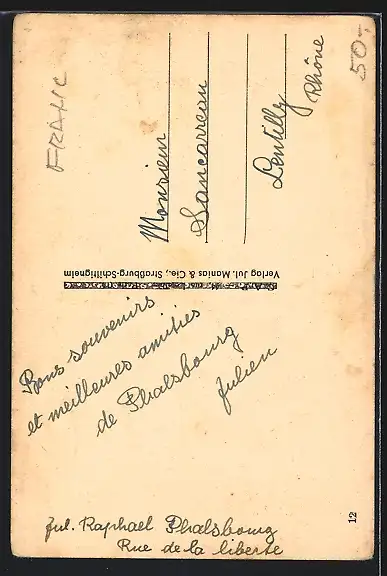 FRANC
50.-
Monsieur
Sancarreau
Lentilly
Rhône
Verlag Jul. Manias & Cie., Straßburg-Schiltigheim
Bons souvenirs
et meilleures amitiés
de Phalsbourg
Julien
Jul. Raphael Phalsbourg
Rue de la liberte
12